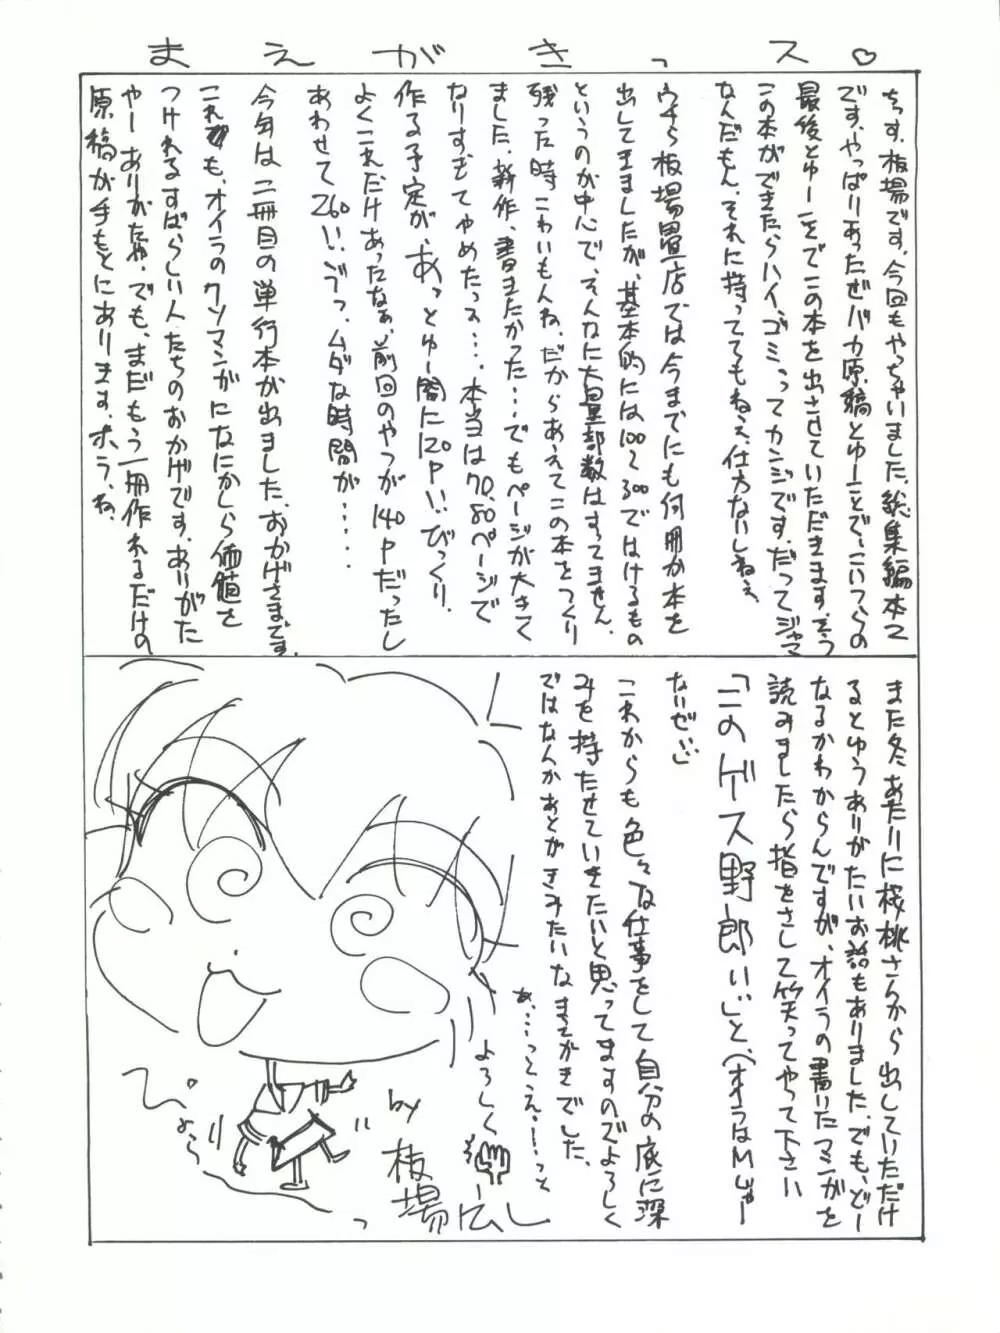 まえがきっス♡
ちす、板場です。今回もやっちゃいました、総集編本2
です。やっぱりあったぜバカ原稿とゆーことで、こいつらの
最後とゆーことでこの本を出させていただきます。もう
この本ができたらハイ、ゴミってカンジです。だってジャマ
なんだもん。それに持っててもねぇ、仕方ないしねぇ。
ウチら板場畳店では今までにも何冊か本を
出してきましたが、基本的には100〜300ではけるもの
というのが中心で、そんなに大量部数はすってません。
残った時こわいもんね。だからあえてこの本をつくり
ました。新作、書きたかった…でもページが大きく
なりすぎてやめたっス…。本当は70、80ページで
作る予定が、あっとゆー間に120P!!びっくり。
よくこれだけあったなぁ。前回のやつが140Pだったし
あわせて260!!ぶっ、ムダな時間が……
今年は二冊目の単行本が出ました。おかげさまです。
これも、オイラのクソマンガになにかしら価値を
つけれるすばらしい人たちのおかげです。ありがた
やーありがたや。でも、まだもう一冊作れるだけの
原稿が手もとにあります。ホラ、ね。
また冬あたりに桜桃さんから出していただけ
るとゆうありがたいお話もありました。でも、どー
なるかわからんですが、オイラの書いたマンガを
読みましたら指をさして笑ってやって下さい
「このゲス野郎!!」と、(オイラはMじゃー
ないぜ!!)
これからも色々な仕事をして自分の底に深
みを持たせていきたいと思ってますのでよろしく
ではなんかあとがきみたいなまえがきでした。
あ…っとえーーっと
よろしく
by
板場広し
っ